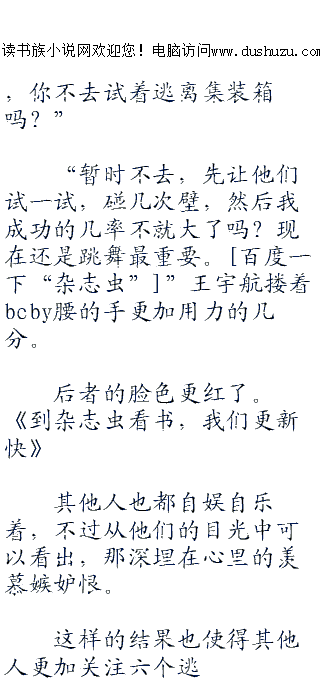 读书族小说网欢迎您！电脑访问www.dushuzu.com
，你不去试着逃离集装箱
吗？”
“暂时不去，先让他们
试一试，碰几次壁，然后我
成功的几率不就大了吗？现
在还是跳舞最重要。[百度一
下“杂志虫”]”王宇航搂着
bcby腰的手更加用力的几
分。
后者的脸色更红了。
《到杂志虫看书，我们更新
快》
其他人也都自娱自乐
着，不过从他们的目光中可
以看出，那深埋在心里的羡
慕嫉妒恨。
这样的结果也使得其他
人更加关注六个逃